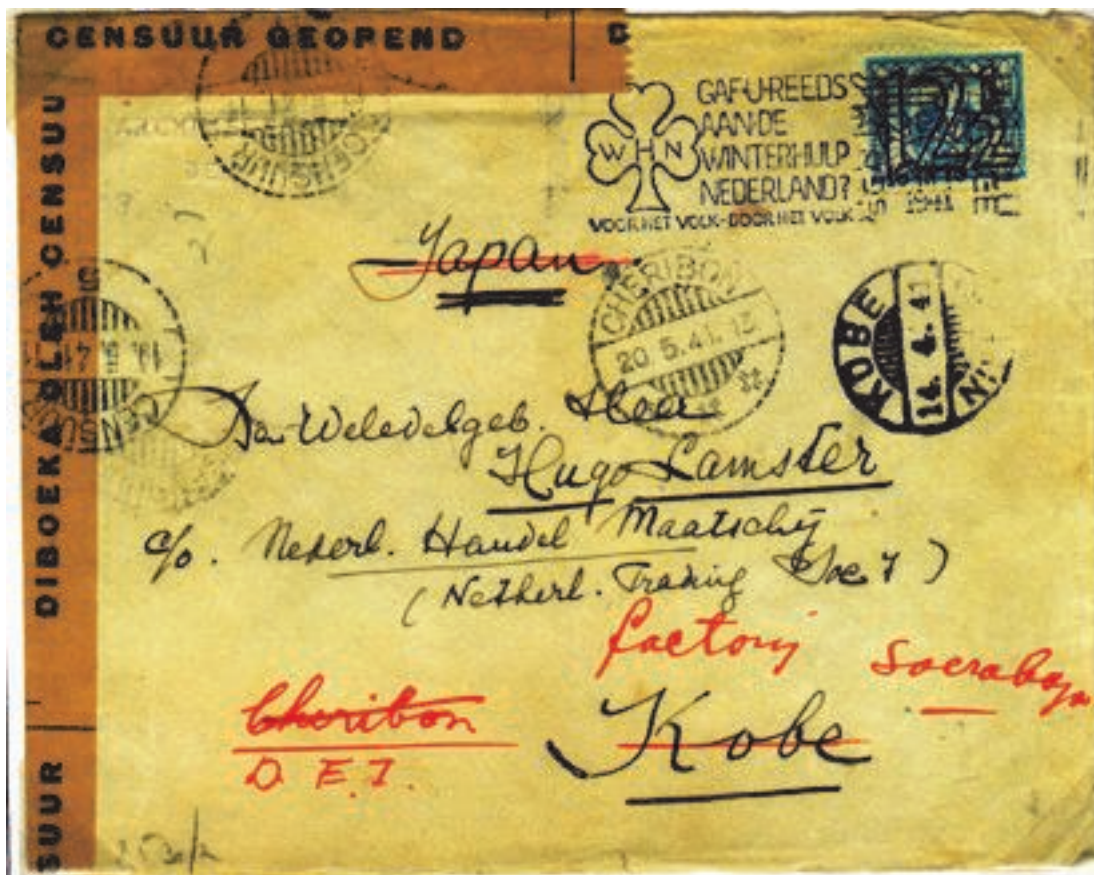 CENSUUR GEOPEND D
DIBOEKA OLEH CENSUU
SUUR
CENSUUR
GAF-U-REEDS
AAN-DE
WINTERHULP
NEDERLAND?
VOOR HET VOLK-DOOR HET VOLK
WHN
1941
12½
Japan
CHERIBON
20.5.41.13
KOBE
14.4.41
CENSU
Den Weledelgeb. Heer
Hugo Lamster
c/o. Nederl. Handel Maatschij
(Netherl. Trading Soc y)
factorij Soerabaja
Cheribon
D.E.I.
Kobe